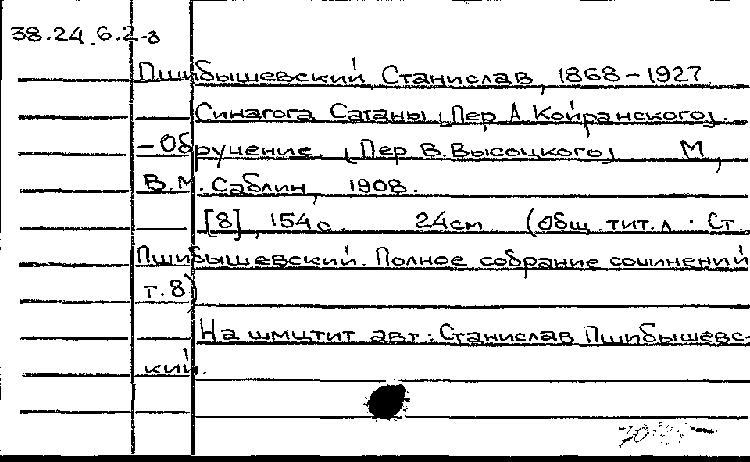 38.24.6.2-8
Пшибышевский, Станислав, 1868-1927
Синагога Сатаны [Пер А. Койранского].
- Обручение. [Пер В. Высоцкого] М,
В.М. Саблин, 1908.
[8], 154 с. 24 см (Общ. тит. л. Ст.
Пшибышевский. Полное собрание сочинений
т. 8)
На шмцтит авт.: Станислав Пшибышевс-
кий.